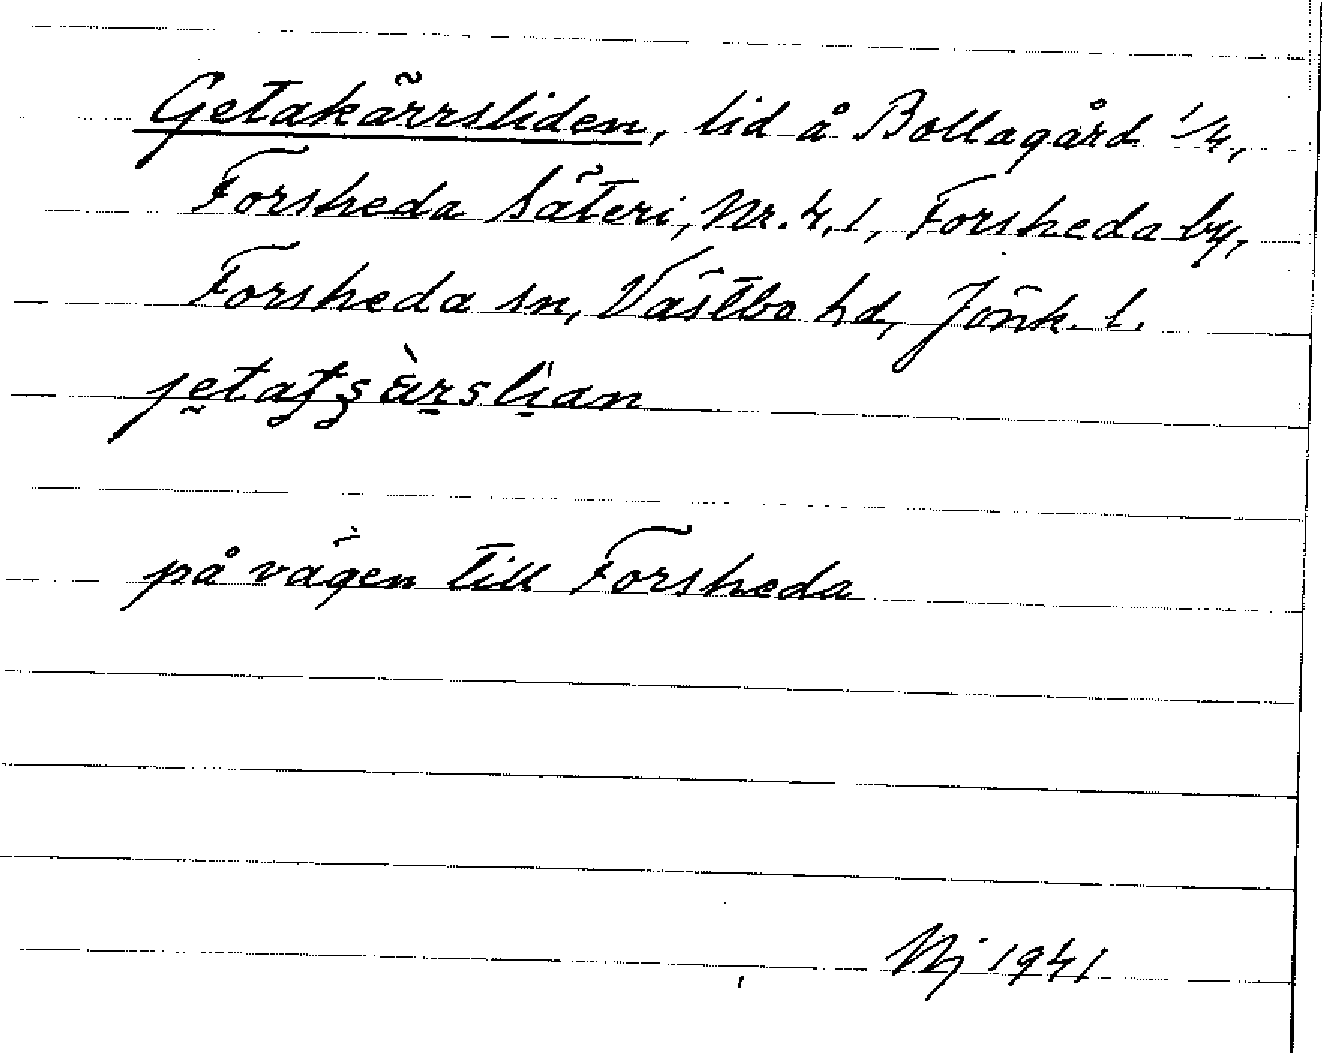 Getakärrsliden, lid å Bollagård 1/4,
Forsheda Säteri, Nr. 4,1, Forsheda by,
Forsheda sn, Västbo hd, Jönk. l.
på vägen till Forsheda
Nj 1941